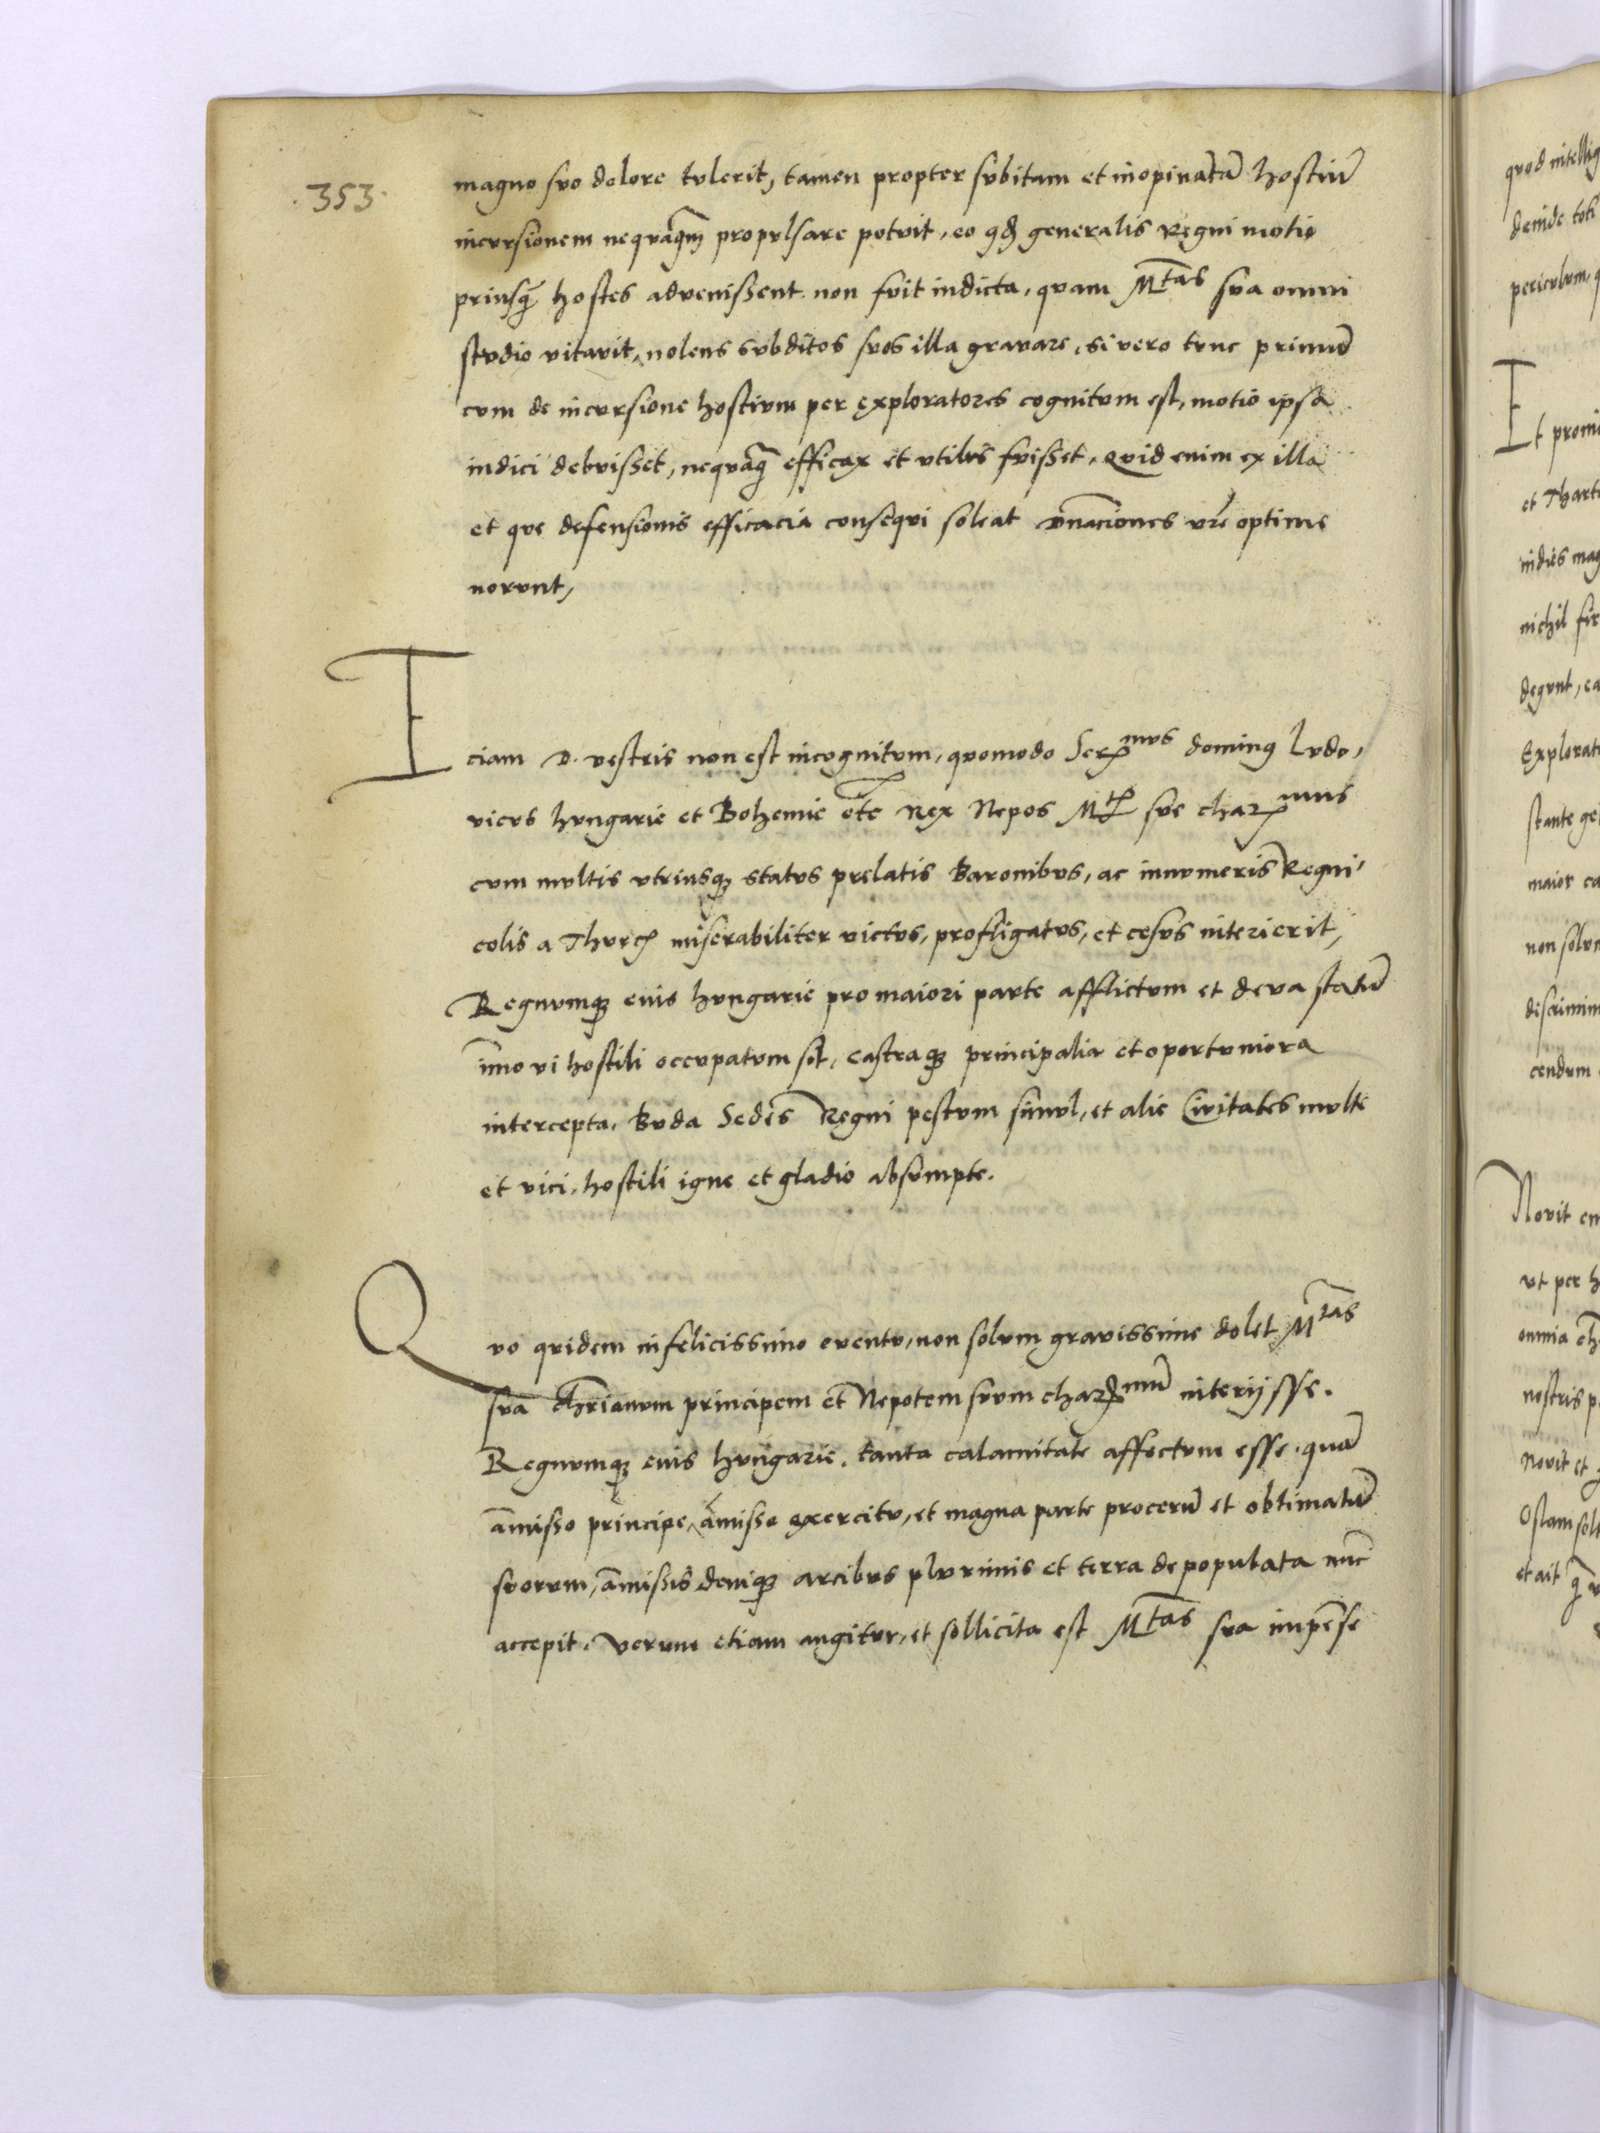 .353.
magno svo dolore tvlerit, tamen propter svbitam et inopinatā hostiū
incvrsionem neqvāqm̄ propvlsare potvit, eo qđ generalis Regni motio
priusq̄ hostes advenissent non fvit indicta, qvam Mtas sva omni
stvdio vitavit, nolens svbditos svos illa gravare, si vero tvnc primū
cvm de incvrsione hostivm per exploratores cognitvm est, motio ipsa
indici debvisset, neqvāq̄ efficax et vtilis fvisset, Qvid enim ex illa
et qve defensionis efficacia conseqvi soleat dn̄aciones vr̄e optime
norvnt,
Eciam D. vestris non est incognitvm, qvomodo Serꝰmvs dominꝰ Lvdo,
vicvs hvngarie et Bohemie etc̄ Rex Nepos Mtꝭ sve charꝰmus
cvm mvltis vtriusqꝫ statvs prelatis Baronibvs, ac innvmeris Regni,
colis a Thvrcꝭ miserabiliter victvs, profligatvs, et cesvs interierit,
Regnvmqꝫ eius hvngarie pro maiori parte afflictvm et devastatū
īmo vi hostili occvpatvm sit, castraqꝫ principalia et oportvniora
intercepta, Bvda Sedes Regni pestvm simvl, et alie Civitates mvlte
et vici, hostili igne et gladio absvmpte.
Qvo qvidem infelicissimo eventv, non solvm gravissime dolet Mtas
sva chrīanvm principem et Nepotem svvm charꝰmū interijsse.
Regnvmqꝫ eius hvngarie, tanta calamitate affectvm esse, quā
āmisso principe, āmisso exercitv, et magna parte procerū et obtimatū
svorvm, āmissis deniqꝫ arcibvs plvrimis et terra depopulata nūc
accepit, Vervm etiam angitvr, et sollicita est Mtas sva impēse
quod intellig
deinde toti
pericvlvm,
Et promi
et Thart
indies mag
nichil
degvnt, ea
Explorat
stante ge
maior ca
non solvm
discrimin
cendvm
Novit en
vt per h
omnia
nostris p
Novit et
et ait